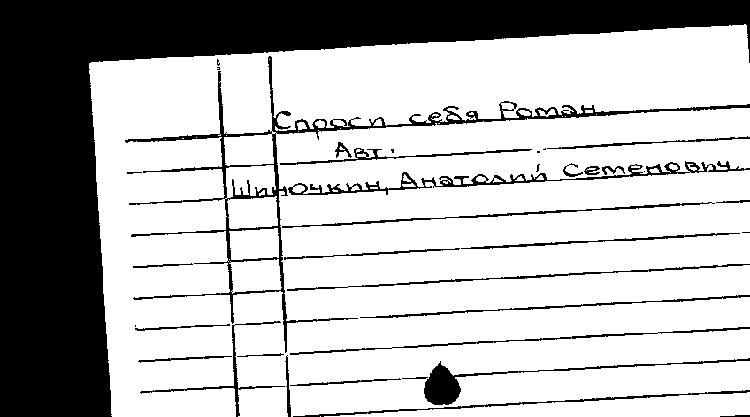 Спроси себя Роман.
Авт.:
Шиночкин, Анатолий Семенович.